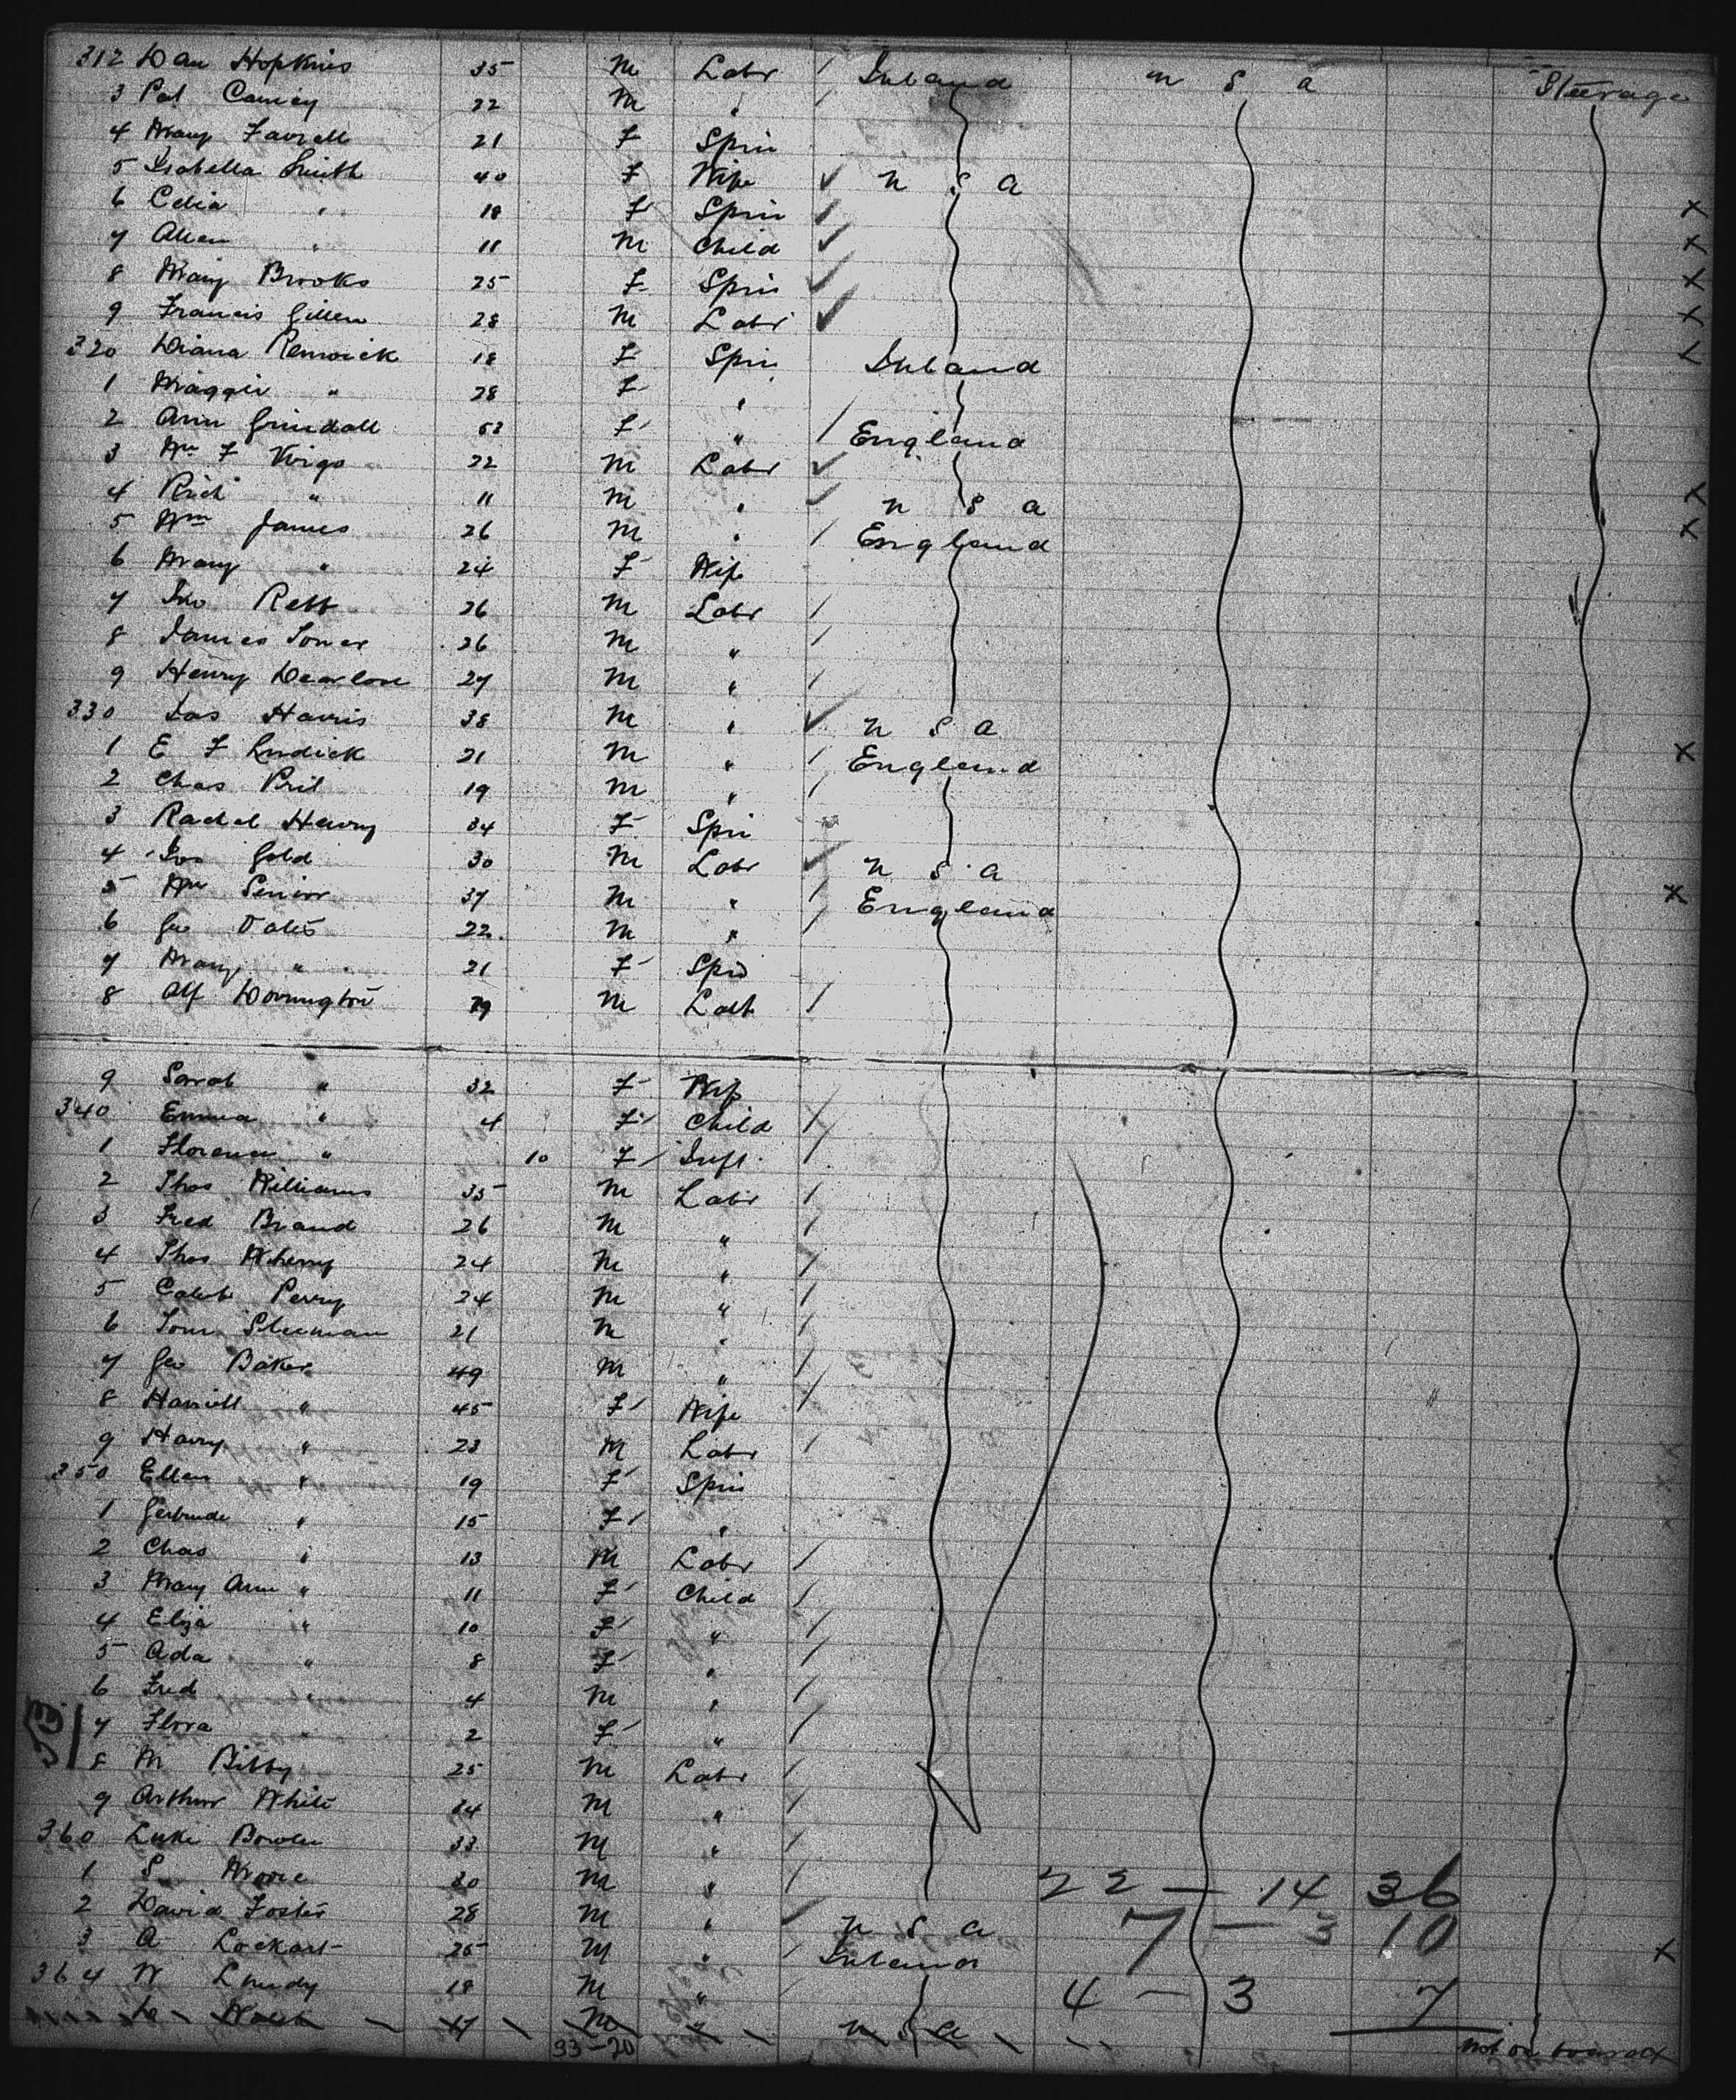 312 Dan Hopkins 35 M Labr / Ireland U S A Steerage
3 Pat 22 M " /
4 Mary Farrell 21 F Spin
5 Isabella Smith 40 F Wife ✓ U S A
6 Celia " 18 F Spin ✓ x
7 Allen " 11 M Child ✓ x
8 Mary Brooks 25 F Spin ✓ x
9 Francis Gillen 28 M Labr ✓ x
320 Diana Renwick 18 F Spin Ireland
1 Maggie " 28 F "
2 Ann Grindall 53 F " / England
3 Wm F Virgo 22 M Labr ✓
4 Rich " 11 M " ✓ U S A x
5 Wm James 26 M " / England x
6 Mary " 24 F Wife
7 Jno 26 M Labr /
8 James 26 M " /
9 Henry Dearlove 27 M " /
330 Jas Harris 38 M " ✓ U S A
1 E F 21 M " / England x
2 Chas 19 M " /
3 Rachel 34 F Spin
4 Gold 30 M Labr ✓ U S A
5 Wm Senior 37 M " / England x
6 Geo 22 M " /
7 Mary " 21 F Spin
8 Alf Dorrington 29 M Labr /
9 Sarah " 32 F Wife
340 Emma " 4 F Child /
1 Florence " 10 F Inft /
2 Thos Williams 35 M Labr /
3 Fred Brand 26 M " /
4 Thos Wherry 24 M " /
5 Caleb Perry 24 M " /
6 Tom Sleeman 21 M " /
7 Geo Baker 49 M " /
8 Harriett " 45 F Wife /
9 Harry " 23 M Labr /
350 Ellen " 19 F Spin
1 Gertrude " 15 F "
2 Chas " 13 M Labr /
3 Mary Ann " 11 F Child /
4 Eliza " 10 F " /
5 Ada " 8 F " /
6 Fred " 4 M " /
7 Flora " 2 F " /
8 M Bibby 25 M Labr /
9 Arthur White 34 M " /
360 Luke 33 M " /
1 S Moore 30 M " / 22 — 14 36
2 David Foster 28 M " ✓ U S A 7 — 3 10
3 A Lockart 25 M " / Ireland x
364 W 18 M " / 4 — 3 7
M U S A not on board
33-20